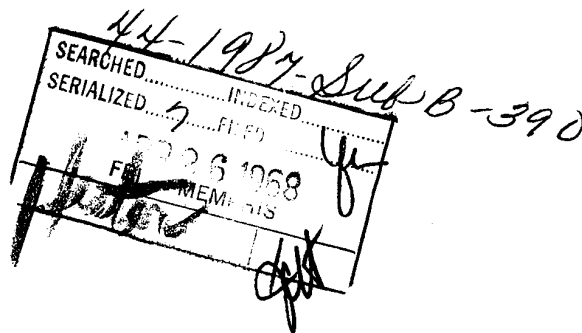 44-1987-Sub B-390
SEARCHED..............INDEXED..............
SERIALIZED.......FILED..............
APR 26 1968
FBI MEMPHIS